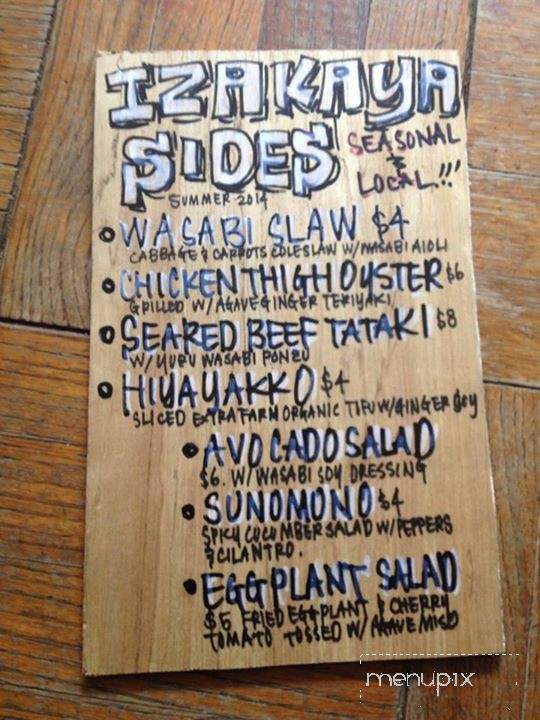 IZAKAYA
SIDES
SEASONAL
&
LOCAL!!!
SUMMER 2014
WASABI SLAW $4
CABBAGE & CARROTS COLESLAW W/WASABI AIOLI
CHICKEN THIGH OYSTER $6
GRILLED W/AGAVE GINGER TERIYAKI
SEARED BEEF TATAKI $8
W/ YUZU WASABI PONZU
HIYAYAKKO $4
SLICED EXTRA FARM ORGANIC TOFU W/GINGER SOY
AVOCADO SALAD
$6. W/WASABI SOY DRESSING
SUNOMONO $4
SPICY CUCUMBER SALAD W/PEPPERS
& CILANTRO.
EGGPLANT SALAD
$5 FRIED EGGPLANT & CHERRY
TOMATO TOSSED W/ AGAVE MISO
menupix